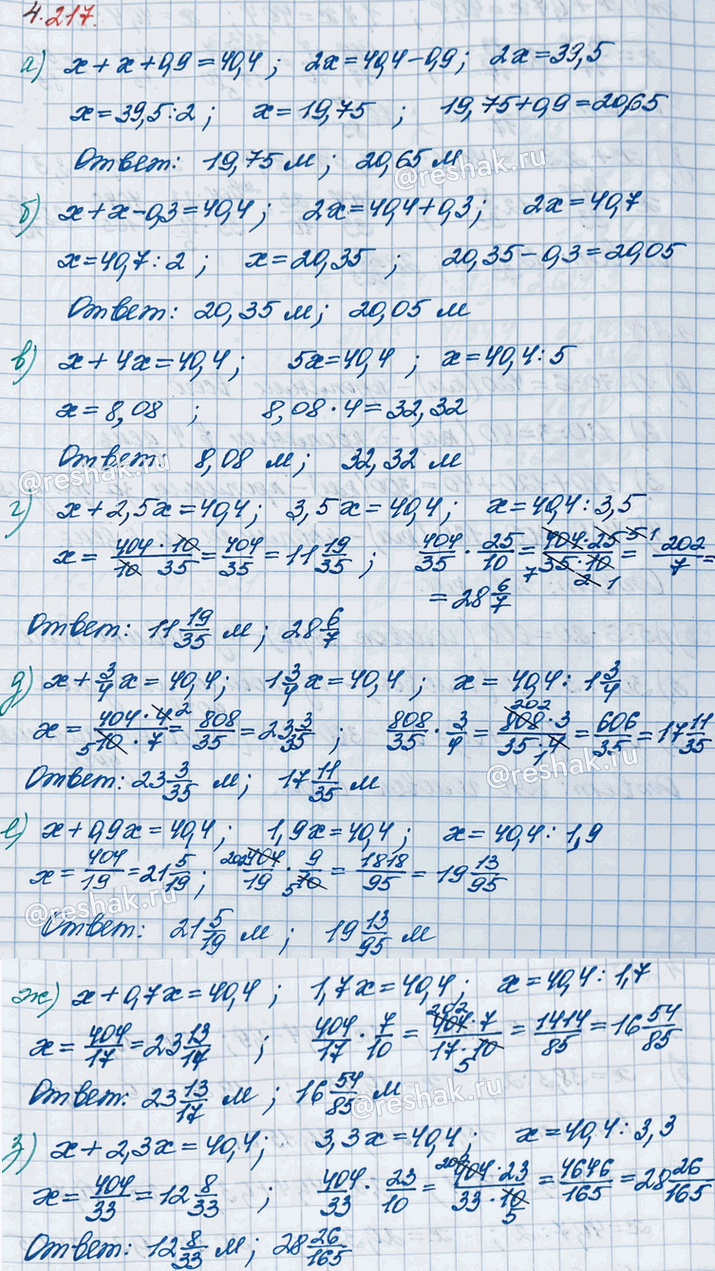 4.217.
а) x + x + 0,9 = 40,4 ; 2x = 40,4 - 0,9 ; 2x = 39,5
x = 39,5 : 2 ; x = 19,75 ; 19,75 + 0,9 = 20,65
Ответ: 19,75 м ; 20,65 м
@reshak.ru
б) x + x - 0,3 = 40,4 ; 2x = 40,4 + 0,3 ; 2x = 40,7
x = 40,7 : 2 ; x = 20,35 ; 20,35 - 0,3 = 20,05
Ответ: 20,35 м ; 20,05 м
в) x + 4x = 40,4 ; 5x = 40,4 ; x = 40,4 : 5
x = 8,08 ; 8,08 · 4 = 32,32
Ответ: 8,08 м ; 32,32 м
@reshak.ru
г) x + 2,5x = 40,4 ; 3,5x = 40,4 ; x = 40,4 : 3,5
x = 404 · 10 / 10 · 35 = 404/35 = 11 19/35 ; 404/35 · 25/10 = 404 · 25 5 1 / 7 35 · 10 2 1 = 202/7 =
= 28 6/7
Ответ: 11 19/35 м ; 28 6/7
д) x + 3/4 x = 40,4 ; 1 3/4 x = 40,4 ; x = 40,4 : 1 3/4
x = 404 · 4 2 / 5 10 · 7 = 808/35 = 23 3/35 ; 808/35 · 3/4 = 202 808 · 3 / 35 · 4 1 = 606/35 = 17 11/35
Ответ: 23 3/35 м ; 17 11/35 м
@reshak.ru
е) x + 0,9x = 40,4 ; 1,9x = 40,4 ; x = 40,4 : 1,9
x = 404/19 = 21 5/19 ; 202 404/19 · 9/5 10 = 1818/95 = 19 13/95
@reshak.ru
Ответ: 21 5/19 м ; 19 13/95 м
ж) x + 0,7x = 40,4 ; 1,7x = 40,4 ; x = 40,4 : 1,7
x = 404/17 = 23 13/17 ; 404/17 · 7/10 = 202 404 · 7 / 17 · 10 5 = 1414/85 = 16 54/85
Ответ: 23 13/17 м ; 16 54/85 м
@reshak.ru
з) x + 2,3x = 40,4 ; 3,3x = 40,4 ; x = 40,4 : 3,3
x = 404/33 = 12 8/33 ; 404/33 · 23/10 = 202 404 · 23 / 33 · 10 5 = 4646/165 = 28 26/165
Ответ: 12 8/33 м ; 28 26/165